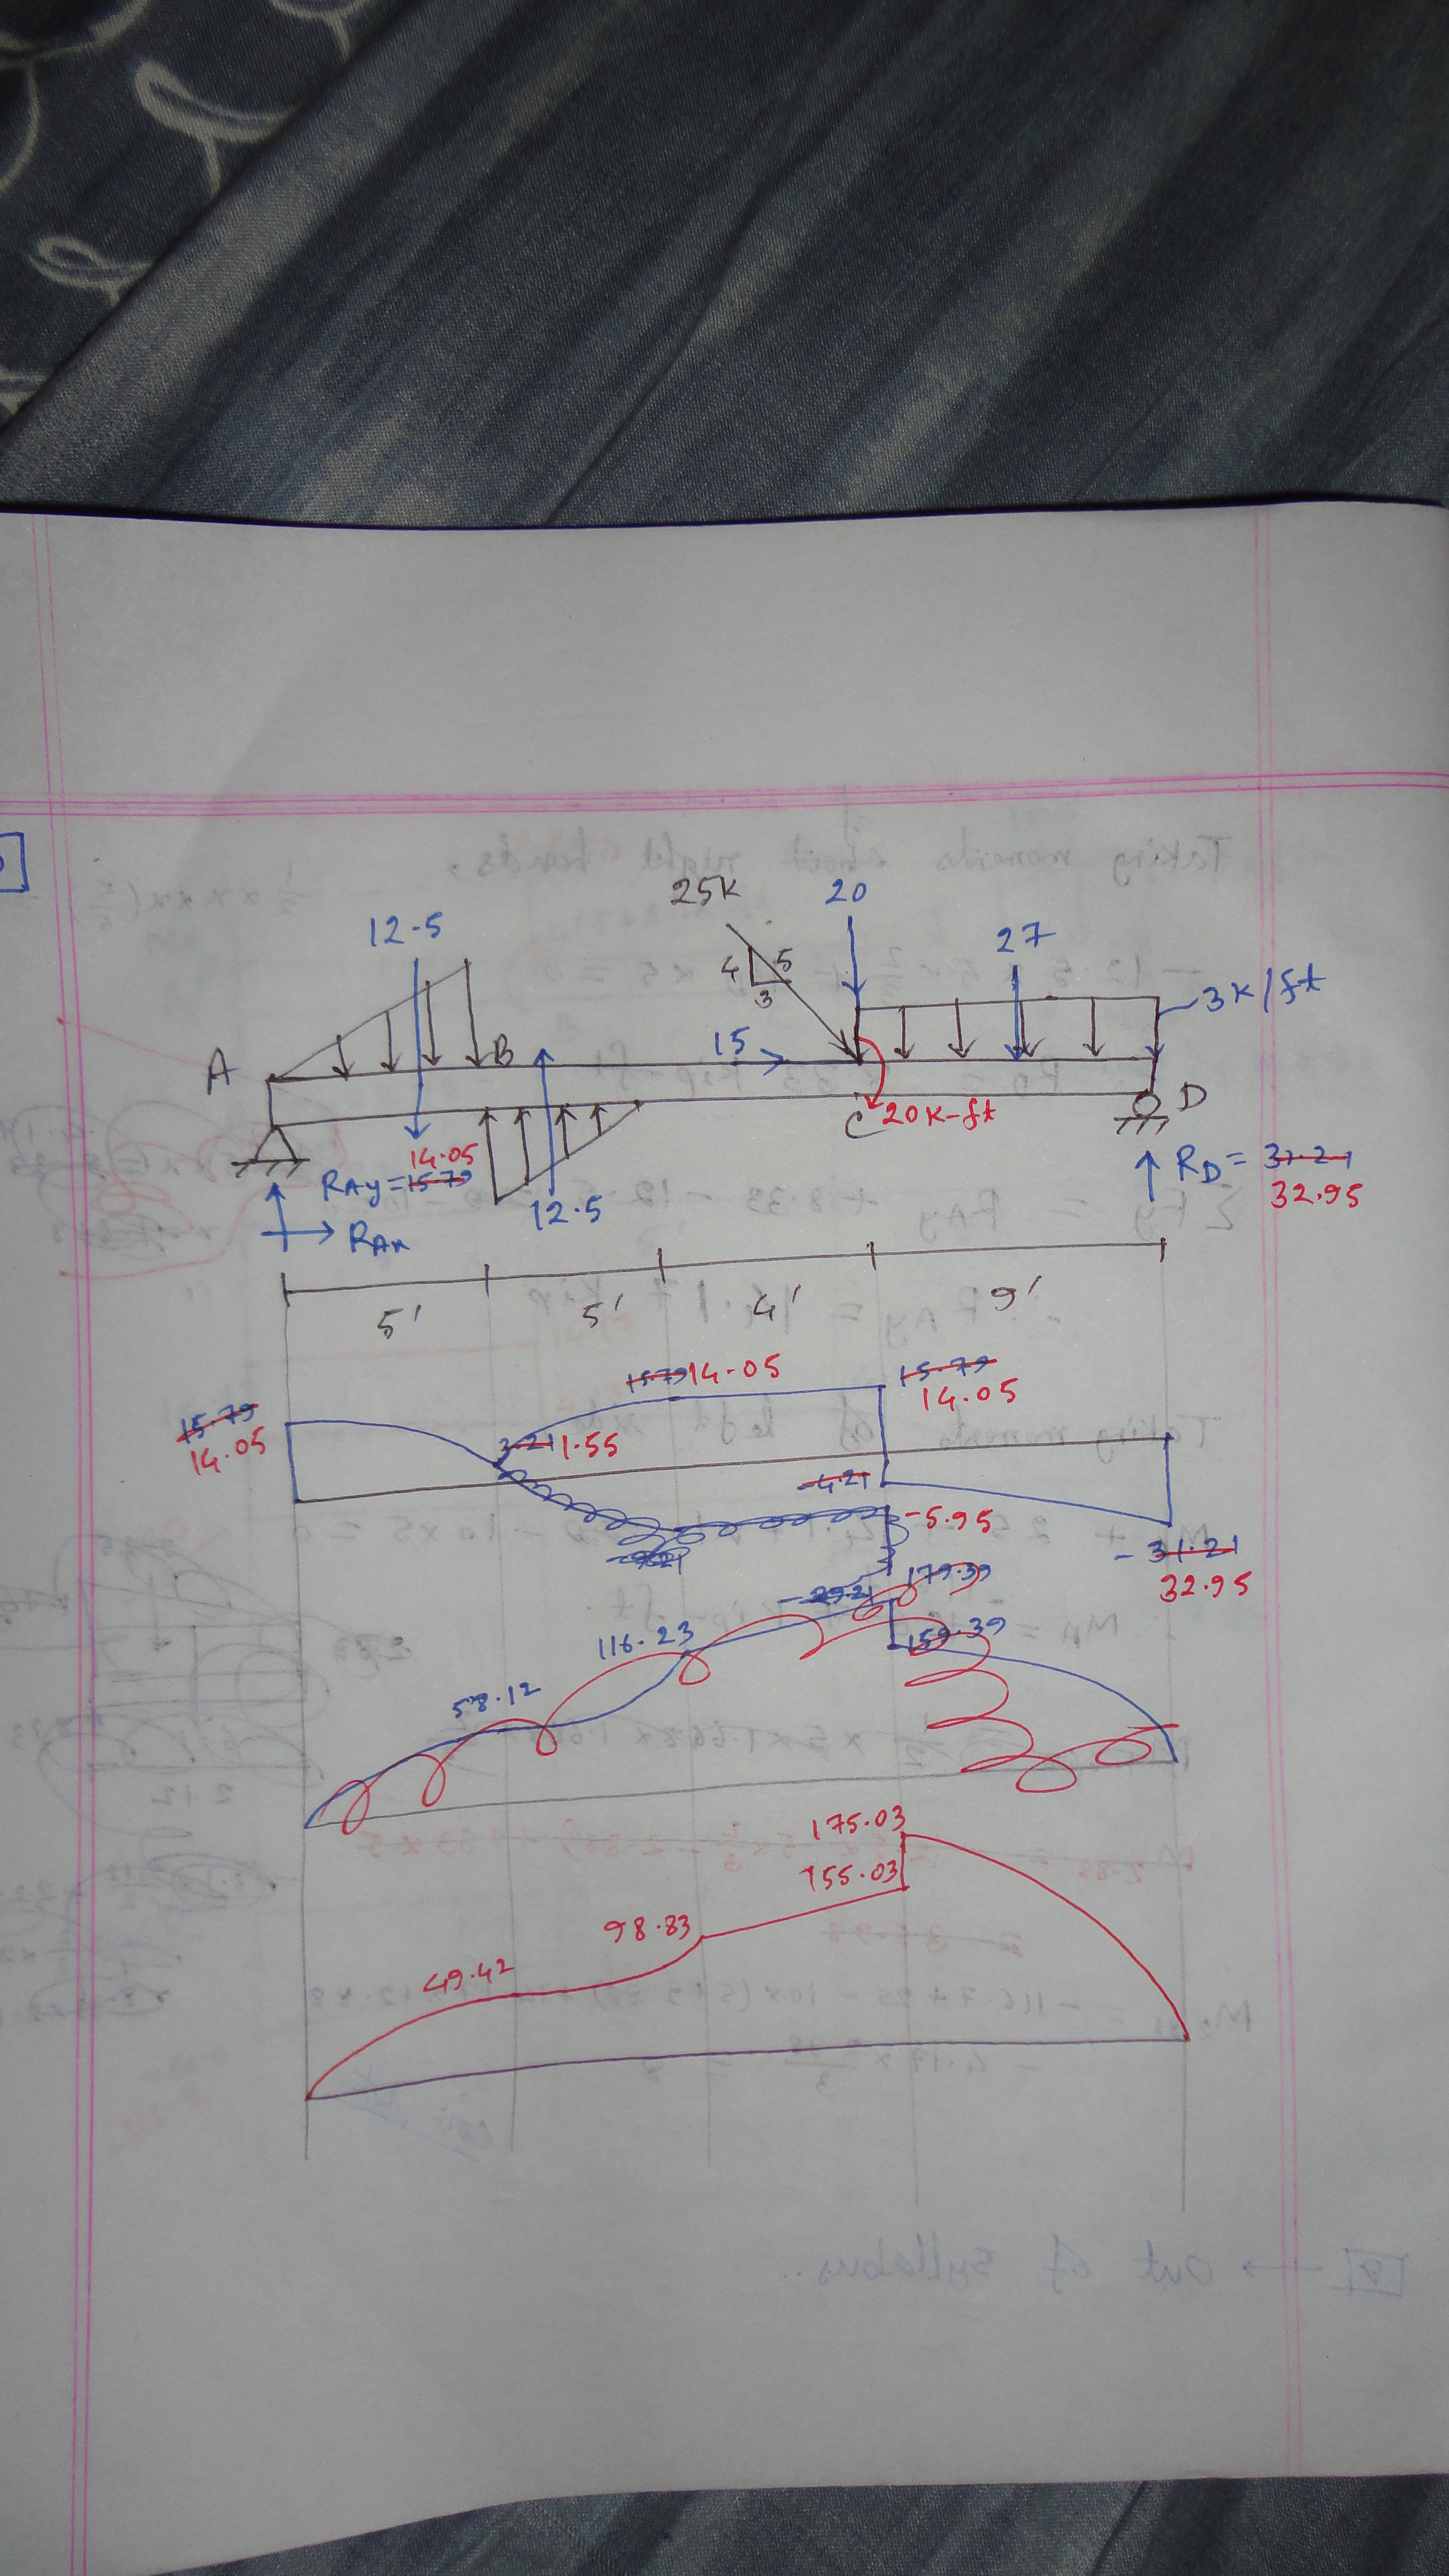 25K
20
12.5
27
4 5
3
3K/ft
A
B
15
C
20 K-ft
D
14.05
RAy = 15.79
12.5
RAx
RD = 31.21
32.95
5'
5'
4'
9'
15.79 14.05
15.79
14.05
15.79
14.05
3.21 1.55
-4.21
-5.95
-31.21
32.95
-29.21
179.39
116.23
159.39
58.12
175.03
155.03
98.83
49.42